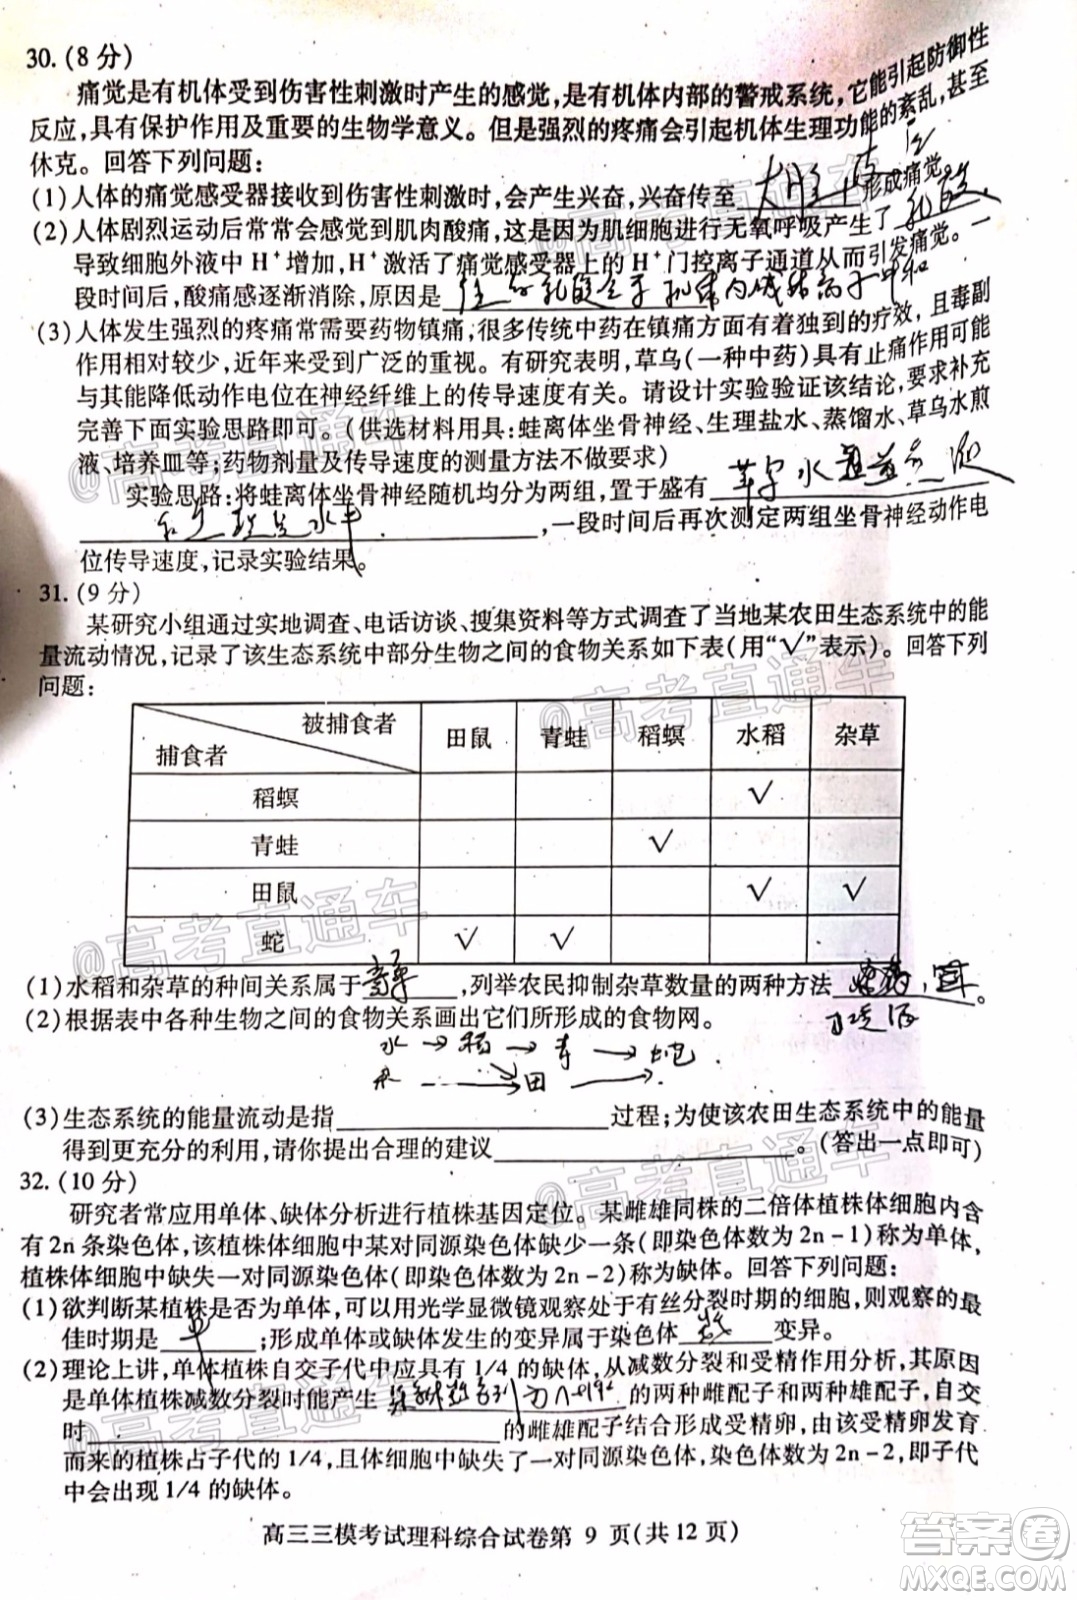 30.(8分)
痛觉是有机体受到伤害性刺激时产生的感觉,是有机体内部的警戒系统,它能引起防御性
反应,具有保护作用及重要的生物学意义。但是强烈的疼痛会引起机体生理功能的紊乱,甚至
休克。回答下列问题:
(1)人体的痛觉感受器接收到伤害性刺激时,会产生兴奋,兴奋传至大脑皮层形成痛觉。
(2)人体剧烈运动后常常会感觉到肌肉酸痛,这是因为肌细胞进行无氧呼吸产生了乳酸,
导致细胞外液中H⁺增加,H⁺激活了痛觉感受器上的H⁺门控离子通道从而引发痛觉。一
段时间后,酸痛感逐渐消除,原因是
(3)人体发生强烈的疼痛常需要药物镇痛,很多传统中药在镇痛方面有着独到的疗效,且毒副
作用相对较少,近年来受到广泛的重视。有研究表明,草乌(一种中药)具有止痛作用可能
与其能降低动作电位在神经纤维上的传导速度有关。请设计实验验证该结论,要求补充
完善下面实验思路即可。(供选材料用具:蛙离体坐骨神经、生理盐水、蒸馏水、草乌水煎
液、培养皿等;药物剂量及传导速度的测量方法不做要求)
实验思路:将蛙离体坐骨神经随机均分为两组,置于盛有
,一段时间后再次测定两组坐骨神经动作电
位传导速度,记录实验结果。
31.(9分)
某研究小组通过实地调查、电话访谈、搜集资料等方式调查了当地某农田生态系统中的能
量流动情况,记录了该生态系统中部分生物之间的食物关系如下表(用“√”表示)。回答下列
问题:
被捕食者 捕食者 田鼠 青蛙 稻螟 水稻 杂草
稻螟 √
青蛙 √
田鼠 √ √
蛇 √ √
(1)水稻和杂草的种间关系属于竞争,列举农民抑制杂草数量的两种方法。
(2)根据表中各种生物之间的食物关系画出它们所形成的食物网。
水→稻→青→蛇
杂→田→
(3)生态系统的能量流动是指过程;为使该农田生态系统中的能量
得到更充分的利用,请你提出合理的建议。(答出一点即可)
32.(10分)
研究者常应用单体、缺体分析进行植株基因定位。某雌雄同株的二倍体植株体细胞内含
有2n条染色体,该植株体细胞中某对同源染色体缺少一条(即染色体数为2n-1)称为单体,
植株体细胞中缺失一对同源染色体(即染色体数为2n-2)称为缺体。回答下列问题:
(1)欲判断某植株是否为单体,可以用光学显微镜观察处于有丝分裂时期的细胞,则观察的最
佳时期是;形成单体或缺体发生的变异属于染色体变异。
(2)理论上讲,单体植株自交子代中应具有1/4的缺体,从减数分裂和受精作用分析,其原因
是单体植株减数分裂时能产生的两种雌配子和两种雄配子,自交
时的雌雄配子结合形成受精卵,由该受精卵发育
而来的植株占子代的1/4,且体细胞中缺失了一对同源染色体,染色体数为2n-2,即子代
中会出现1/4的缺体。
高三三模考试理科综合试卷第 9 页(共12页)
@高考直通车
@高考直通车
@高考直通车
@高考直通车
@高考直通车
@高考直通车
答案圈
MXQE.COM